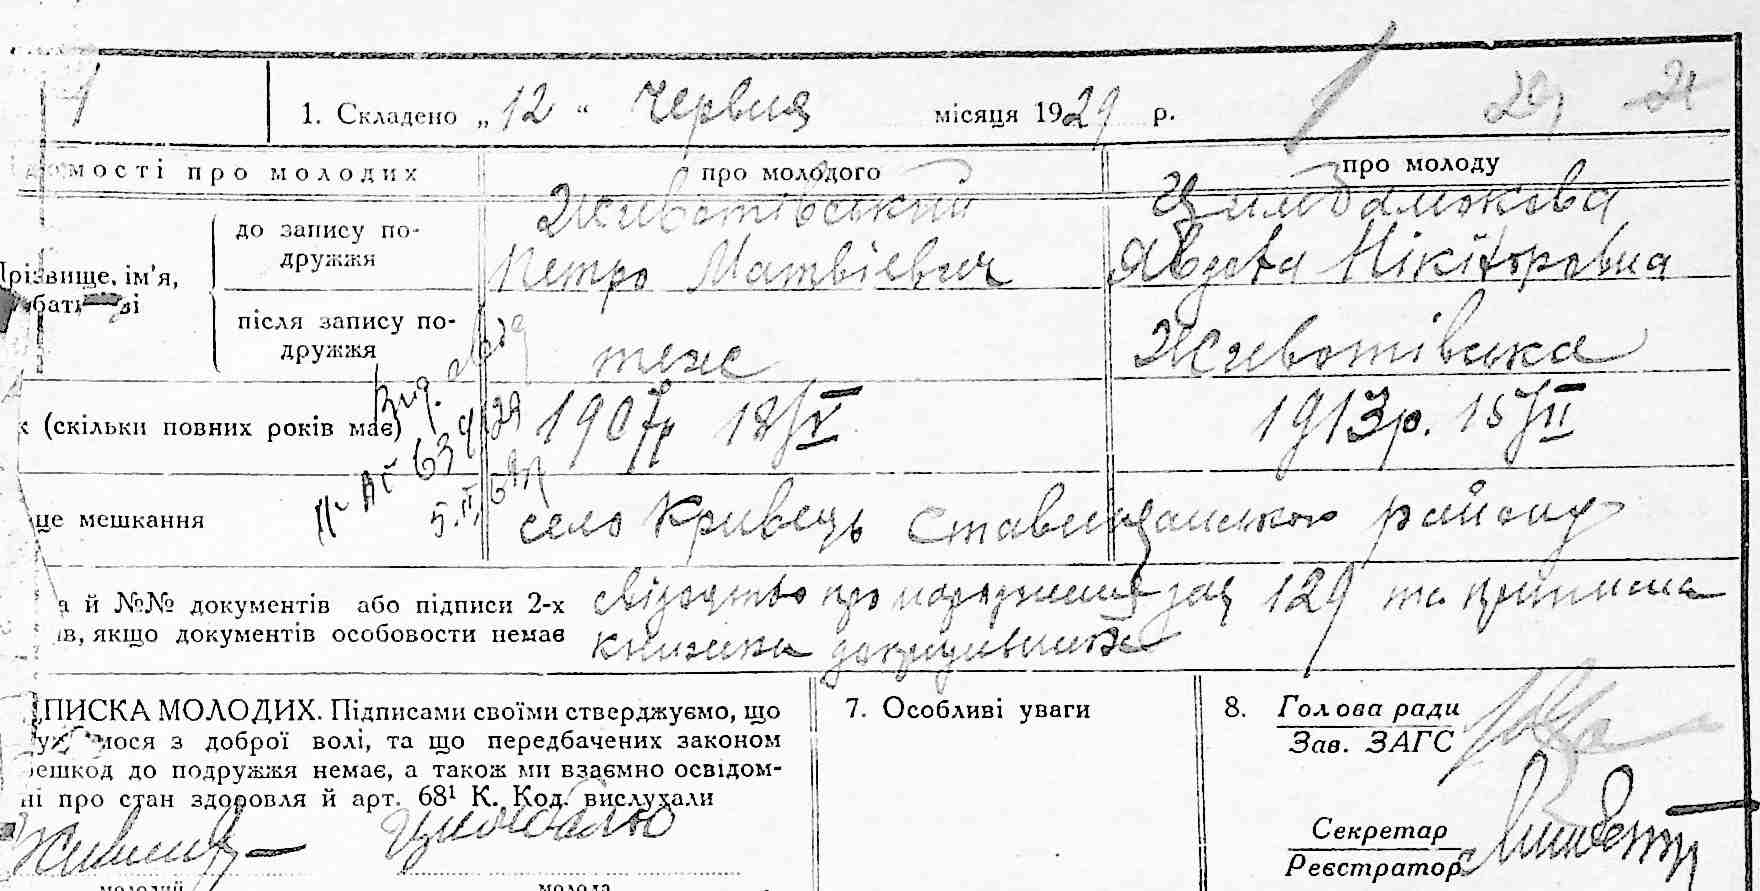 1
1. Складено „12“ червня місяця 1929 р.
29
мості про молодих
про молодого
про молоду
Прізвище, ім'я,
до запису по-
дружжя
Животівський
Петро Матвієвич
Явдоха Нікіфоровна
після запису по-
дружжя
теж
Животівська
(скільки повних років має)
1907р 18/V
1913р. 15/II
Вид.
це мешкання
село Кривець Ставищанського району
й №№ документів або підписи 2-х
якщо документів особовости немає
свідоцтво про народження за 129 та приписна
книжка допризивника
ПИСКА МОЛОДИХ. Підписами своїми стверджуємо, що
мося з доброї волі, та що передбачених законом
ешкод до подружжя немає, а також ми взаємно освідом-
ні про стан здоровля й арт. 68¹ К. Код. вислухали
молодий
молода
7. Особливі уваги
8. Голова ради
Зав. ЗАГС
Секретар
Реєстратор